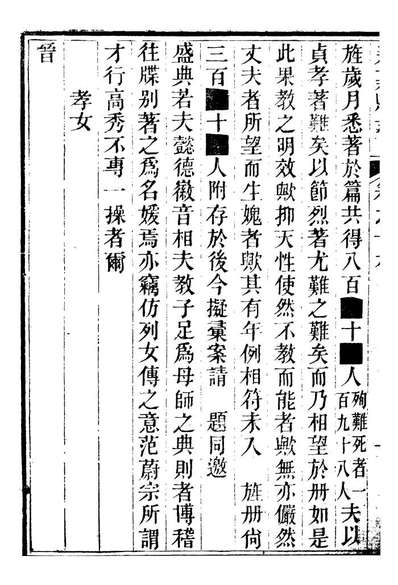 旌歲月悉著於篇共得八百■十■人殉難死者一百九十八人夫以
貞孝著難矣以節烈著尤難之難矣而乃相望於册如是
此果教之明效歟抑天性使然不教而能者歟無亦儼然
丈夫者所望而生媿者歟其有年例相符未入　旌册尙
三百■十■人附存於後今擬彙案請　題同邀
盛典若夫懿德徽音相夫教子足爲母師之典則者博稽
往牒别著之爲名媛焉亦竊仿列女傳之意范蔚宗所謂
才行高秀不專一操者爾
孝女
晉